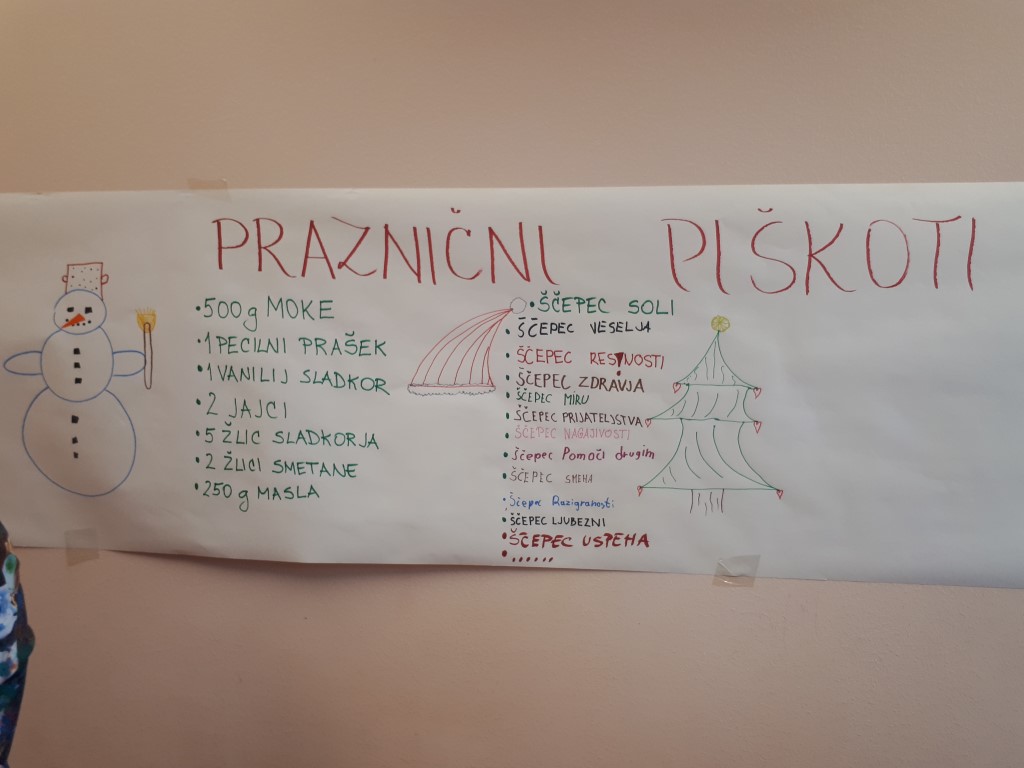 PRAZNIČNI PIŠKOTI
•500g MOKE
•1 PECILNI PRAŠEK
•1 VANILIJ SLADKOR
•2 JAJCI
•5 ŽLIC SLADKORJA
•2 ŽLICI SMETANE
•250g MASLA
•ŠČEPEC SOLI
•ŠČEPEC VESELJA
•ŠČEPEC RESNOSTI
•ŠČEPEC ZDRAVJA
•ŠČEPEC MIRU
•ŠČEPEC PRIJATELJSTVA
•ŠČEPEC NAGAJIVOSTI
•Ščepec Pomoči drugim
•ŠČEPEC SMEHA
•Ščepec Razigranosti
•ŠČEPEC LJUBEZNI
•ŠČEPEC USPEHA
•......